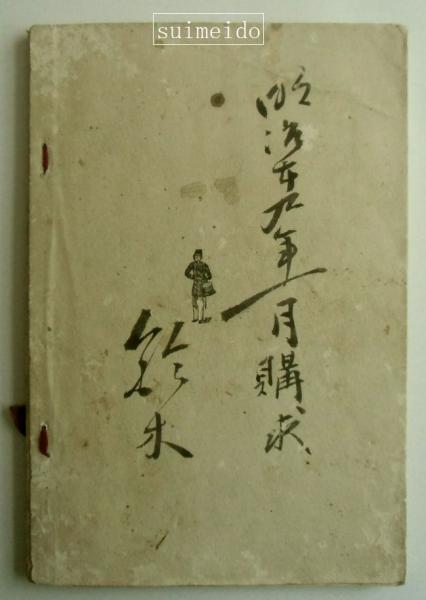 suimeido
明治廿九年一月購求
鈴木